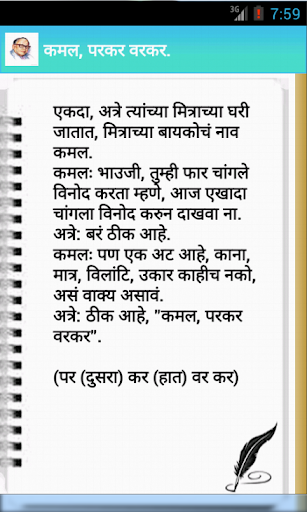 3G 7:59
कमल, परकर वरकर.
एकदा, अत्रे त्यांच्या मित्राच्या घरी
जातात, मित्राच्या बायकोचं नाव
कमल.
कमलः भाउजी, तुम्ही फार चांगले
विनोद करता म्हणे, आज एखादा
चांगला विनोद करुन दाखवा ना.
अत्रे: बरं ठीक आहे.
कमलः पण एक अट आहे, काना,
मात्र, विलांटि, उकार काहीच नको,
असं वाक्य असावं.
अत्रे: ठीक आहे, "कमल, परकर
वरकर".
(पर (दुसरा) कर (हात) वर कर)